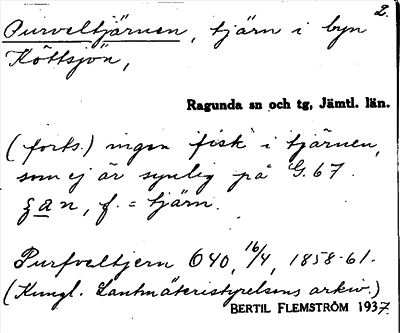 2.
Purveltjärnen, tjärn i byn
Köttsjön,
Ragunda sn och tg, Jämtl. län.
(forts.) ingen fisk i tjärnen,
som ej är synlig på G.67.
f. = tjärn.
Purfveltjern 040, 16/4, 1858-61.
(Kungl. Lantmäteristyrelsens arkiv.)
BERTIL FLEMSTRÖM 1937.